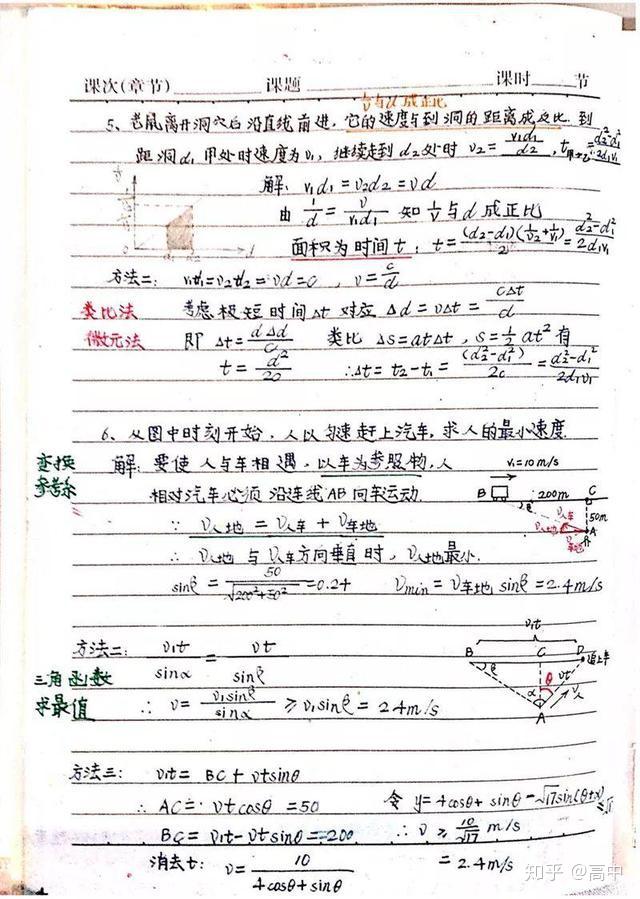 课次(章节) 课题 课时 节
1/v与d成正比
5、老鼠离开洞穴后沿直线前进，它的速度与到洞的距离成反比. 到
距洞d₁甲处时速度为v₁，继续走到d₂处时 v₂= v₁d₁/d₂ ,
解: v₁d₁=v₂d₂=vd
由 1/d = v/v₁d₁ 知 1/v 与 d 成正比
面积为时间t: t= (d₂-d₁)(1/v₂+1/v₁)/2 = d₂²-d₁²/2d₁v₁
方法二: =vd=c , v=c/d
类比法 考虑极短时间Δt 对应 Δd=vΔt= cΔt/d
微元法 即 Δt= dΔd/c 类比 Δs=atΔt , s=½at² 有
t= d²/2c ∴Δt=t₂-t₁= (d₂²-d₁²)/2c = d₂²-d₁²/2d₁v₁
6、从图中时刻开始，人以匀速赶上汽车，求人的最小速度.
变换
参考系
解: 要使人与车相遇，以车为参照物，人 v₁=10m/s
相对汽车必须沿连线AB向车运动. B β 200m C
50m
A
∵ v人地 = v人车 + v车地
∴ v人地 与 v人车方向垂直时，v人地最小.
sinβ= 50/√200²+50² =0.24 vmin = v车地 sinβ=2.4m/s
v₁t
方法二: v₁t/sinα = vt/sinβ B β C D 追上车
三角函数
求最值
∴ v= v₁sinβ/sinα ≥v₁sinβ= 2.4m/s
θ vt α A
方法三: v₁t= BC+vtsinθ
∴ AC= vtcosθ =50 令 y=4cosθ+sinθ=√17sin(θ+α)≤√17
BC= v₁t-vtsinθ=200 ∴ v ≥ 10/√17 m/s
消去t: v= 10/4cosθ+sinθ =2.4m/s
知乎 @高中